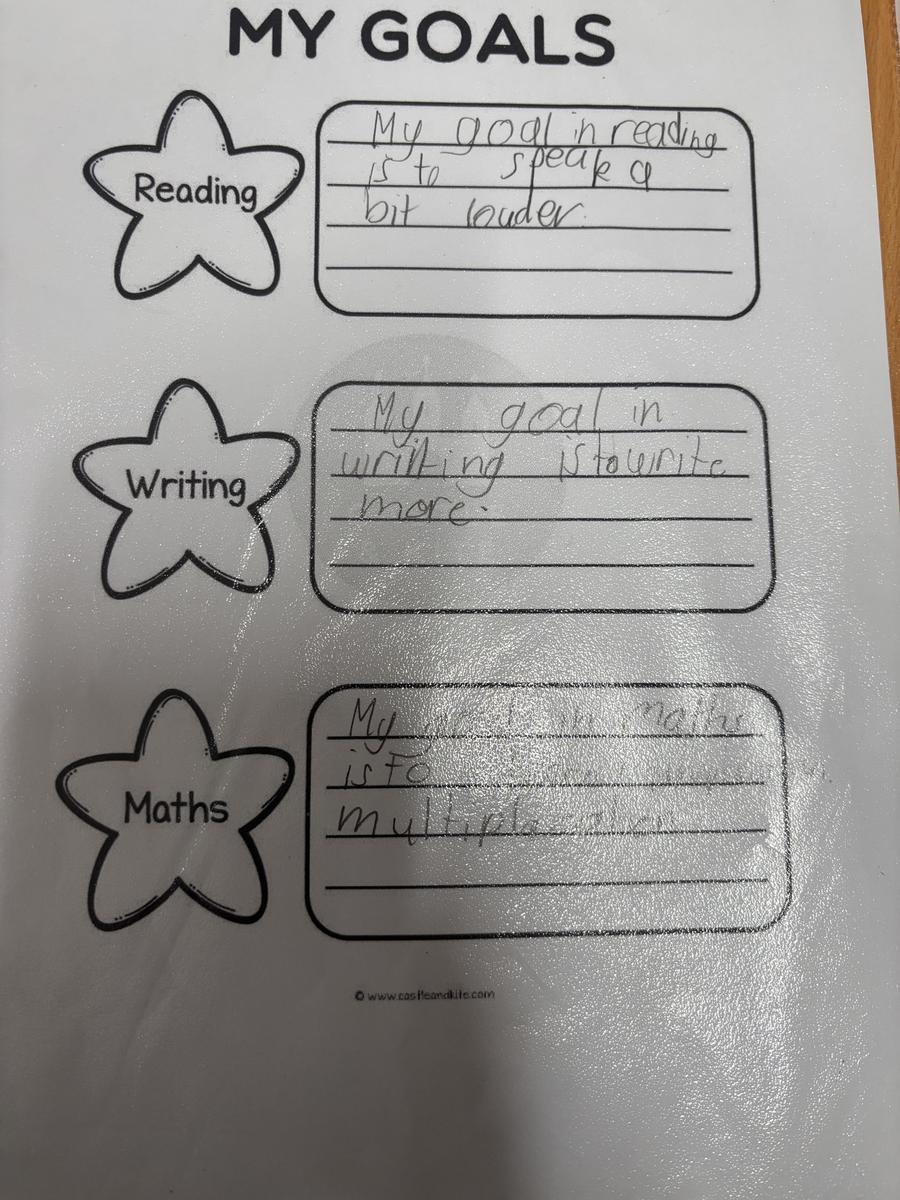 MY GOALS
Reading
My goal in reading
is to speak a
bit louder.
Writing
My goal in
writting is to write
more.
Maths
My goal in maths
is to
© www.castleandkite.com